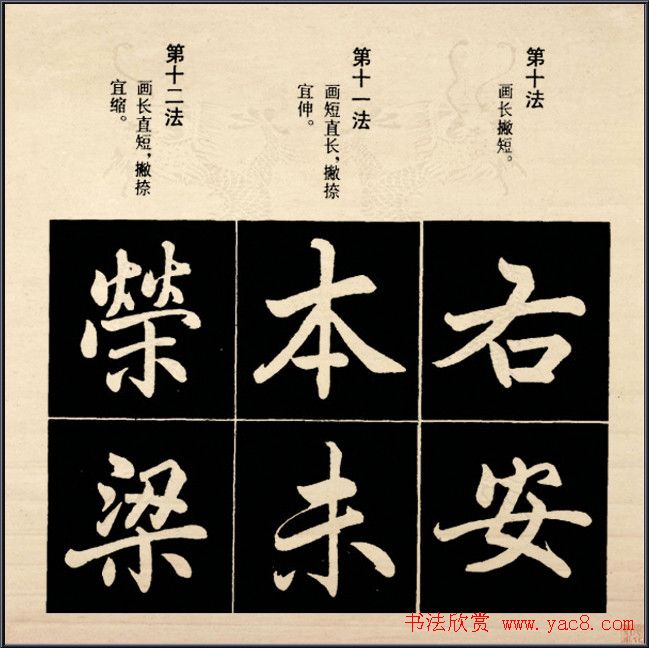 第十法
画长撇短。
第十一法
画短直长，撇捺
宜伸。
第十二法
画长直短，撇捺
宜缩。
右
安
本
未
榮
梁
书法欣赏 www.yac8.com